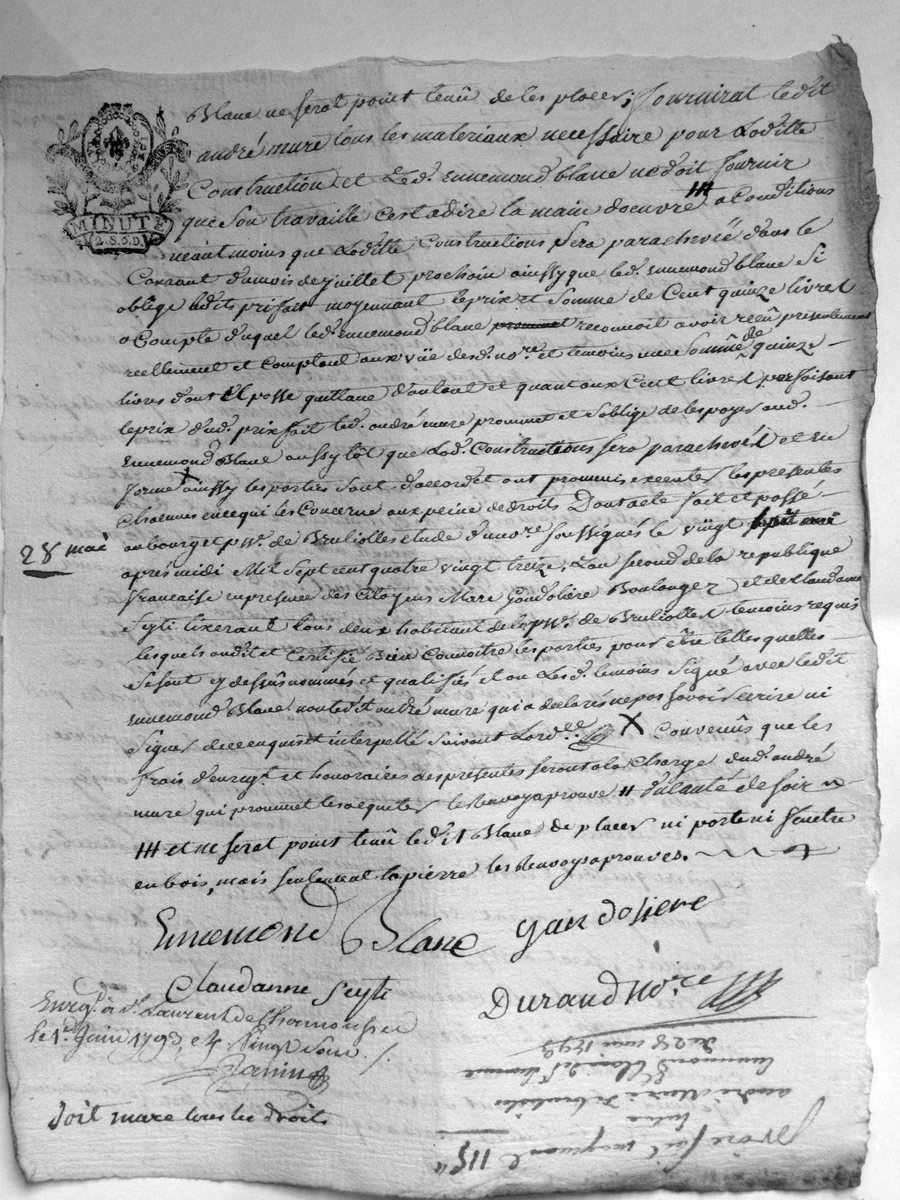 MINUTE
2. S. 6. D.
Blanc ne serat point tenû de les placer; fournirat ledit
andré mure tous les materiaux necessaire pour Laditte
Construction et Led. ennemond blanc ne doit fournir
que son travaille cest adire la main doeuvre # a Conditions
néant moins que Laditte Constructions sera parachevée dans le
Courant du mois de juillet prochain ainssy que led. ennemond blanc si
oblige ledit prisfait moyennant le prix et Somme de Cent quinze livres
a Compte duquel led. ennemond blanc promet reconnoit avoir reçû présentement
reellement et Comptant aux vüe desd. nore. et temoins une Somme de quinze
livres dont il passe quittance d'autant et quant aux Cent livres parfaisant
le prix dud. prix fait led. andré mure prommet et soblige de les payer aud.
ennemond Blanc aussytôt que Lad. Constructions sera parachevée et en
forme X ainssy les parties sont d'accord et ont prommis executer les presentes
Chacunes en ce qui les Concerne aux peine de droits Dont acte fait et passé
au bourg et pse. de Brulliolles etude du nore. soussignés le vingt
28 mai
apres midi Mil sept cent quatre vingt treize, L'an second de la republique
francaise en presence des Citoyens Marc Gandoliere Boulanger et de Claudanne
Seyti tixerant tous deux habitant de la pse. de Brulliolles temoins requis
lesquels ont dit et Certifié Bien Connoitre les parties pour être telles quelles
se sont cy dessus nommés et qualiffiés et ont Les d. temoins signé avec ledit
ennemond Blanc non ledit andré mure qui a declarés ne pas savoir Ecrire ni
signer de ce enquis et interpellé suivant Lord.ce X Convenûs que les
frais d'enregt. et honoraires des presentes seront a la Charge dud. andré
mure qui prommet les acquiter les Renvoy aprouve #
# et ne serat point tenû led.t Blanc de placer ni porte ni fenetre
en bois, mais seulement la pierre les Renvoys aprouvés.
Ennemond Blanc gandoliere
Claudanne Seyti
Durand Nore.
Enregt. à St. Laurent de Chamousset
le 1er. Juin 1793
Doit mure tous les droits
du 28 mai 1793
115 #